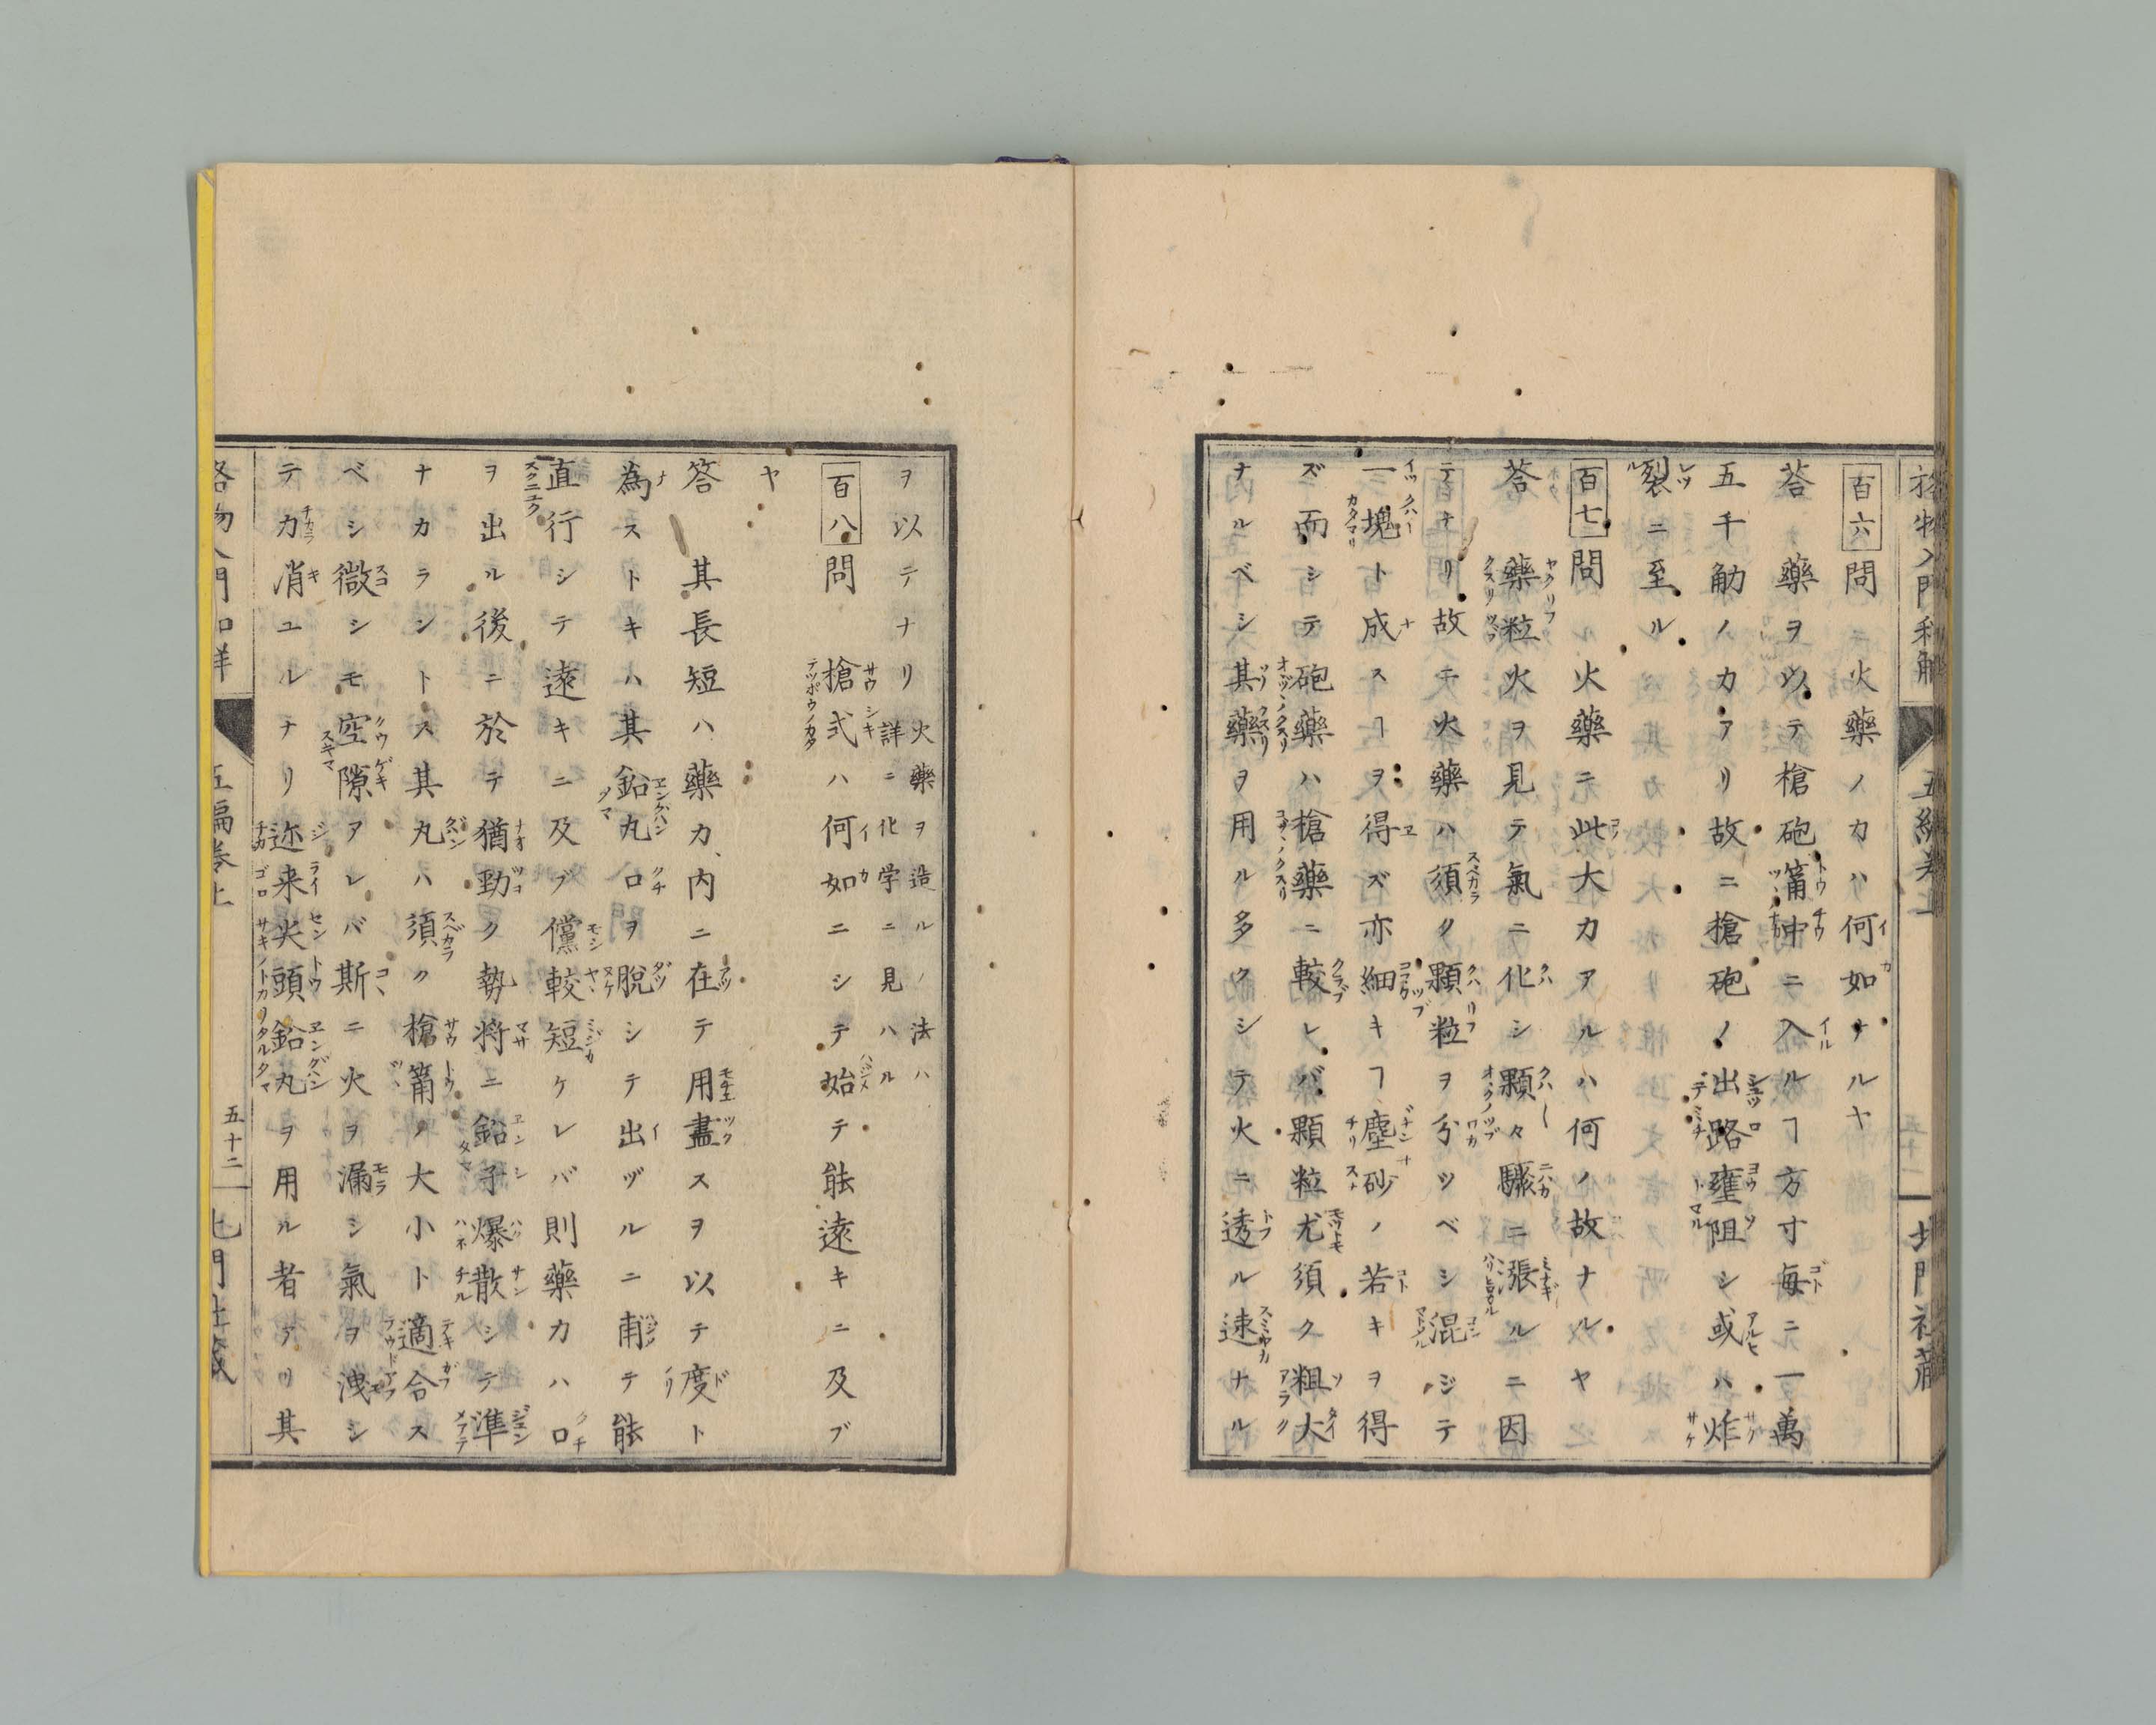 百六問　火藥ノカハ何如ナルヤ
荅　藥ヲ以テ槍砲筩中ニ入ルヿ方寸毎ニ一萬
五千觔ノカアリ故ニ槍砲ノ出路壅阻シ或ハ炸
裂ニ至ル
百七問　火藥ニ此大カアルハ何ノ故ナルヤ
荅　藥粒火ヲ見テ氣ニ化シ顆々驟ニ漲ルニ因
テナリ故ニ火藥ハ須ク顆粒ヲ分ツベシ混ジテ
一塊ト成スヿヲ得ズ亦細キヿ塵砂ノ若キヲ得
ズ而シテ砲藥ハ槍藥ニ較レバ顆粒尤須ク粗大
ナルベシ其藥ヲ用ル多クシテ火ニ透ル速ナル
ヲ以テナリ火藥ヲ造ルノ法ハ
詳ニ化学ニ見ハル
百八問　槍式ハ何如ニシテ始テ能遠キニ及ブ
ヤ
答　其長短ハ藥カ内ニ在テ用盡スヲ以テ度ト
為ストキハ其鉛丸口ヲ脱シテ出ヅルニ甫テ能
直行シテ遠キニ及ブ儻較短ケレバ則藥カハ口
ヲ出ル後ニ於テ猶動ク勢将ニ鉛子爆散シテ準
ナカラントス其丸ハ須ク槍筩ノ大小ト適合ス
ベシ微シモ空隙アレバ斯ニ火ヲ漏シ氣ヲ洩シ
テカ消ユルナリ迩来尖頭鉛丸ヲ用ル者アリ其
五十二